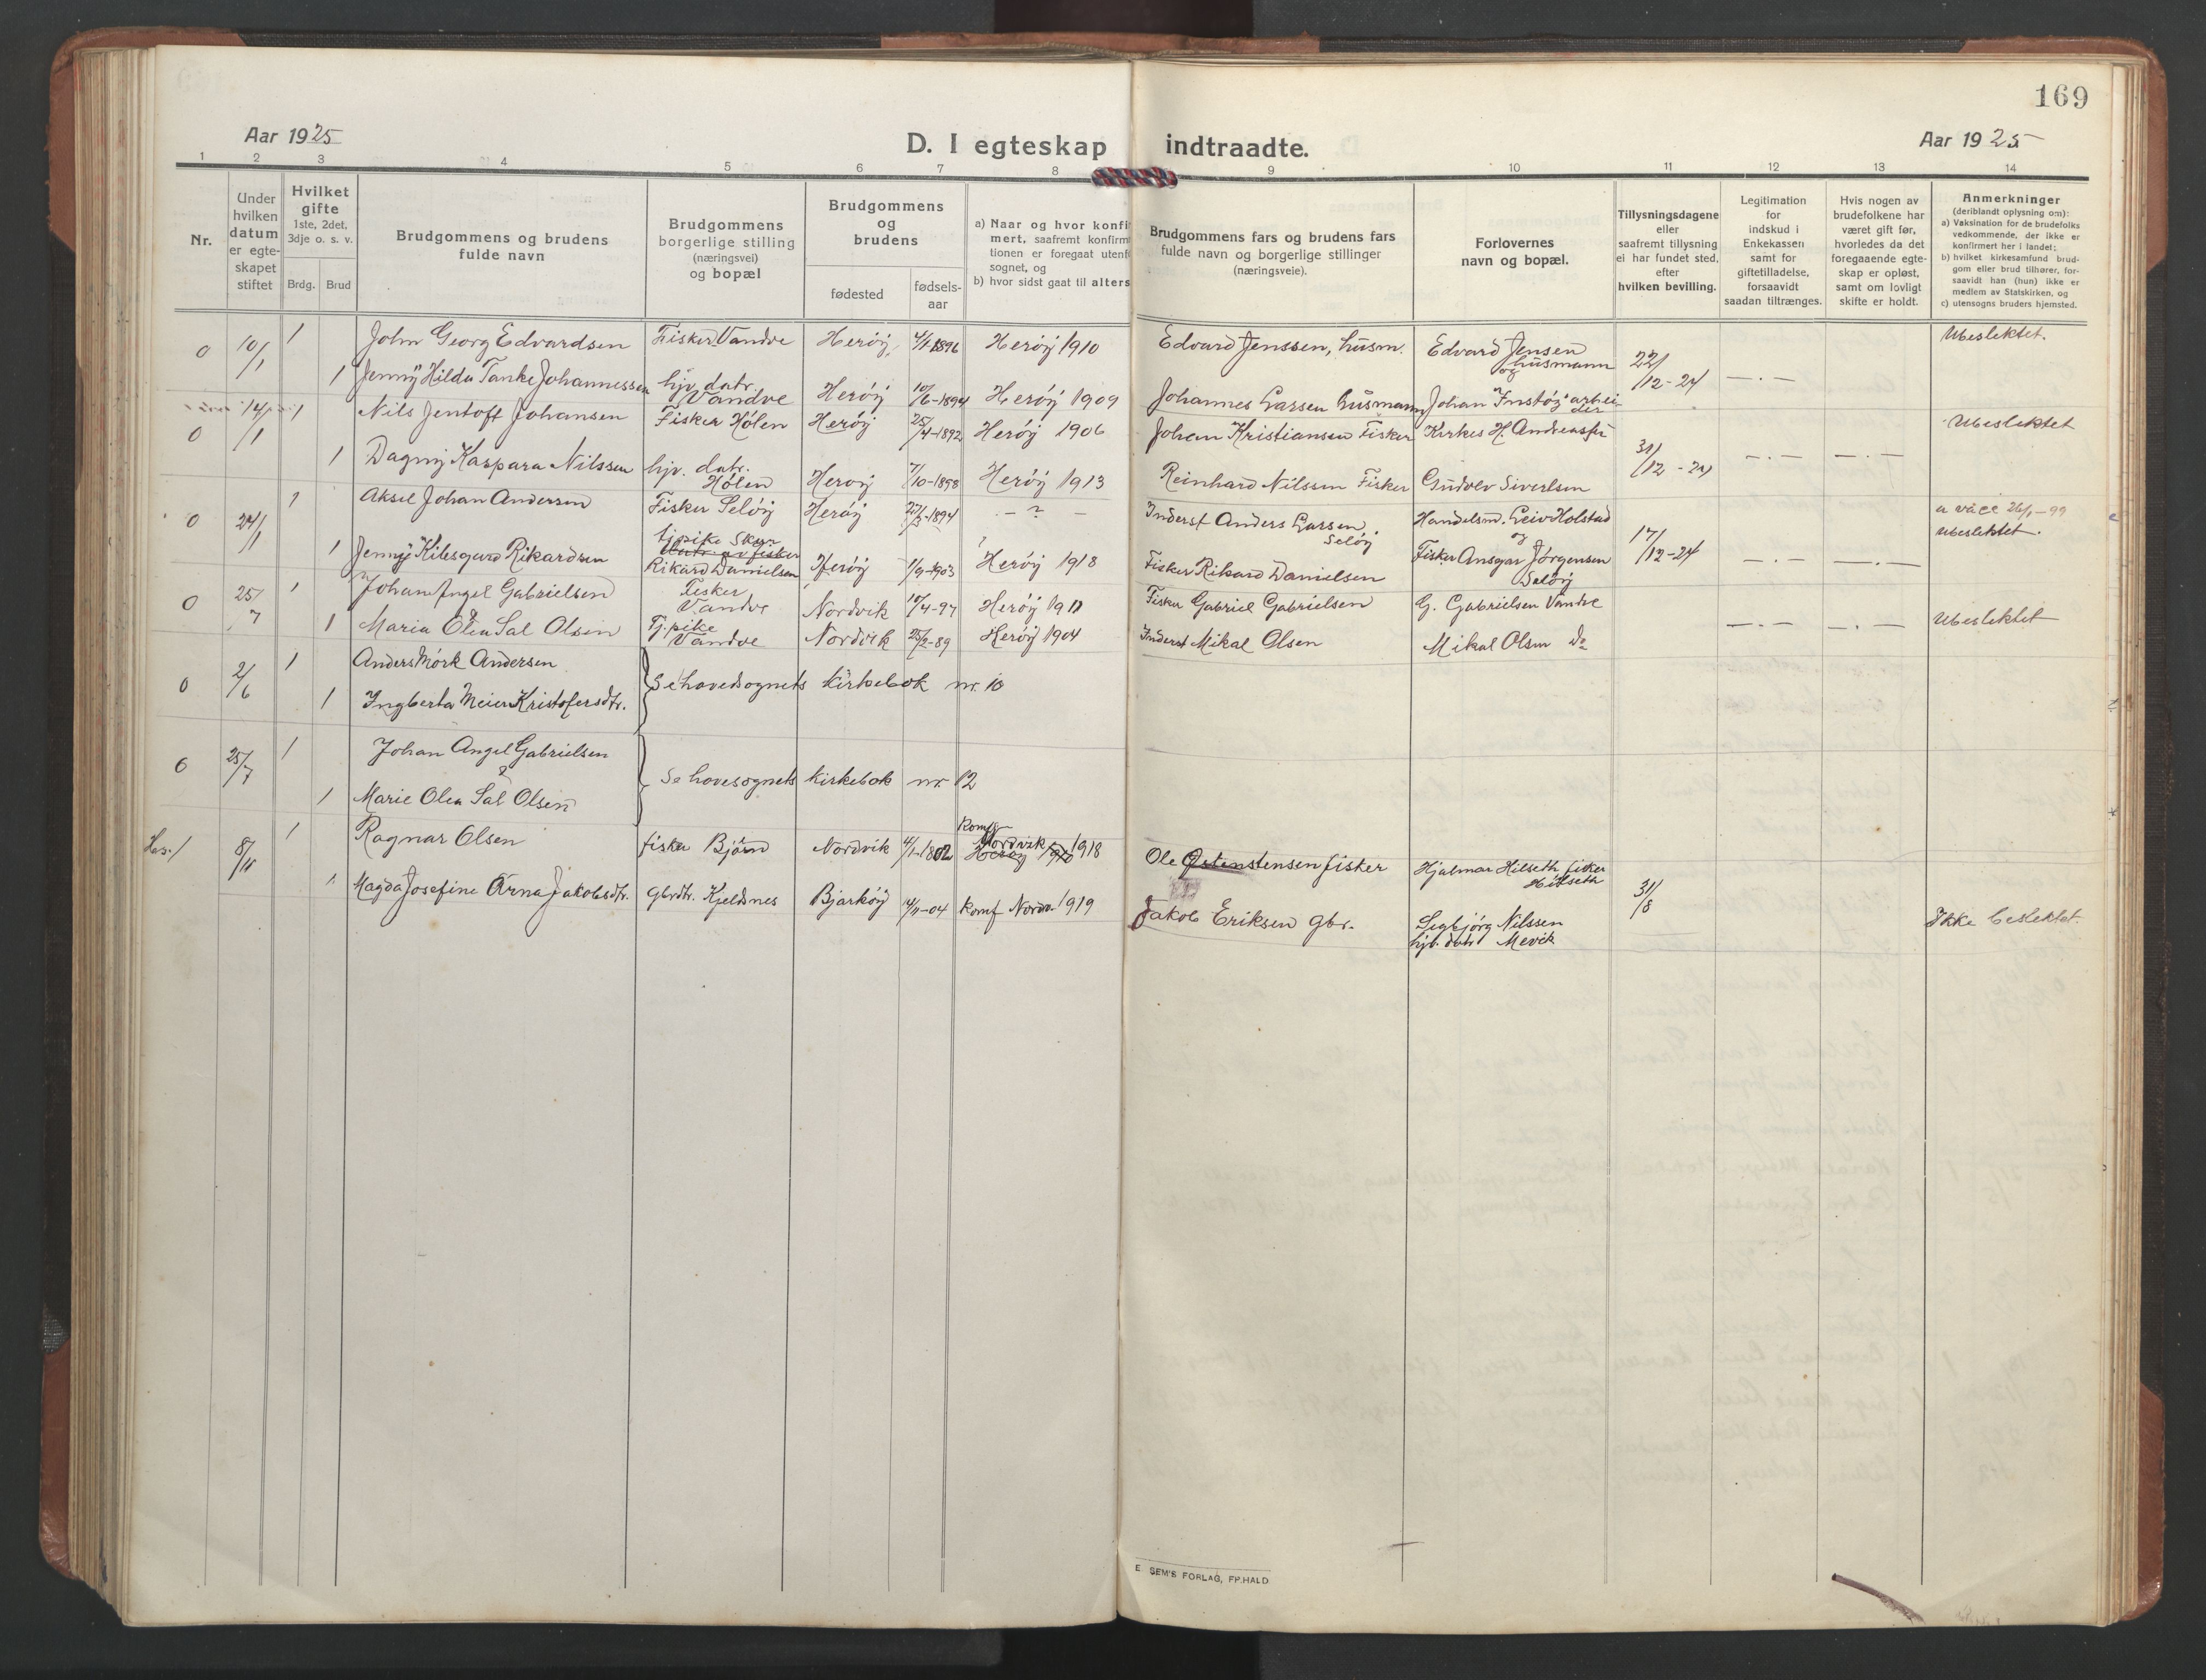 169
Aar 1925
D. I egteskap indtraadte.
Aar 1925
1 2 3 4 5 6 7 8 9 10 11 12 13 14
Nr.
Under hvilken datum er egte-skapet stiftet
Hvilket gifte 1ste, 2det, 3dje o. s. v.
Brdg. Brud
Brudgommens og brudens fulde navn
Brudgommens borgerlige stilling (næringsvei) og bopæl
Brudgommens og brudens
fødested
fødsels-aar
a) Naar og hvor konfi
mert, saafremt konfirm
tionen er foregaat utenf
sognet, og
b) hvor sidst gaat til alters
Brudgommens fars og brudens fars
fulde navn og borgerlige stillinger
(næringsveie).
Forlovernes
navn og bopæl.
Tillysningsdagene
eller
saafremt tillysning
ei har fundet sted,
efter
hvilken bevilling.
Legitimation
for
indskud i
Enkekassen
samt for
giftetilladelse,
forsaavidt
saadan tiltrænges.
Hvis nogen av
brudefolkene har
været gift før,
hvorledes da det
foregaaende egte-
skap er opløst,
samt om lovligt
skifte er holdt.
Anmerkninger
(deriblandt oplysning om):
a) Vaksination for de brudefolks
vedkommende, der ikke er
konfirmert her i landet;
b) hvilket kirkesamfund brud-
gom eller brud tilhører, for-
saavidt han (hun) ikke er
medlem av Statskirken, og
c) utensogns bruders hjemsted.
0 10/1 1 John Georg Edvardsen Fisker Vandve Herøy 4/1-1896 Herøy 1910 Edvard Jenssen, husm. Edvard Jensen husmann og 22/12-24 —.— Ubeslektet.
1 Jenny Hilda Tanke Johannessen hjv. datr. Vandve Herøy 10/6-1894 Herøy 1909 Johannes Larsen Husmann Johan Instøy arbeider
0 14/1 1 Nils Jentoft Johansen Fisker Hölen Herøy 25/4-1892 Herøy 1906 Johan Kristiansen Fisker Kirkes. H. 31/12-24 —.— —.— Ubeslektet
1 Dagny Kaspara Nilssen hjv. datr. Hölen Herøy 7/10-1898 Herøy 1913 Reinhard Nilssen Fisker Gudolv Sivertsen
0 24/1 1 Aksel Johan Andersen Fisker Seløy Herøy 27/3-1894 — ? — Inderst Anders Larsen Seløy Handelsm. Leiv Holstad og 17/12-24 —.— —.— 26/1-99 Ubeslektet.
1 Jenny Rikardsen tjpike datr. av fisker Rikard Danielsen Herøy 1/9-1903 Herøy 1918 Fisker Rikard Danielsen Fisker Ansgar Jørgensen Seløy
0 25/7 1 Johan Angel Gabrielsen Fisker Vandve Nordvik 10/4-97 Herøy 1911 Fisker Gabriel Gabrielsen G. Gabrielsen Vandve —.— —.— Ubeslektet
1 Maria Olea Sal Olsen Tj.pike Vandve Nordvik 25/2-89 Herøy 1904 Inderst Mikal Olsen Mikal Olsen Do
0 2/6 1 Anders Mörk Andersen
1 Ingberta Meier Kristofersdtr. Se hovedsognets kirkebok nr. 10
0 25/7 1 Johan Angel Gabrielsen
&
1 Marie Olea Sal Olsen Se hovesognets kirkebok nr. 12
8/11 1 Ragnar Olsen fisker Björn Nordvik Konf. Nordvik 1918 Herøy Ole Østenstensen fisker Hjalmar Hilseth fisker Hilseth 31/8
1 Magda Josefine Arna Jakobsdtr. Gbrdtr. Kjeldsnes Bjarkøy 14/11-04 Konf Nordv. 1919 Jakob Eriksen Gbr. Sigbjørg Nilssen hjv. datr Mevik Ikke beslektet.
E. SEM'S FORLAG, FR.HALD